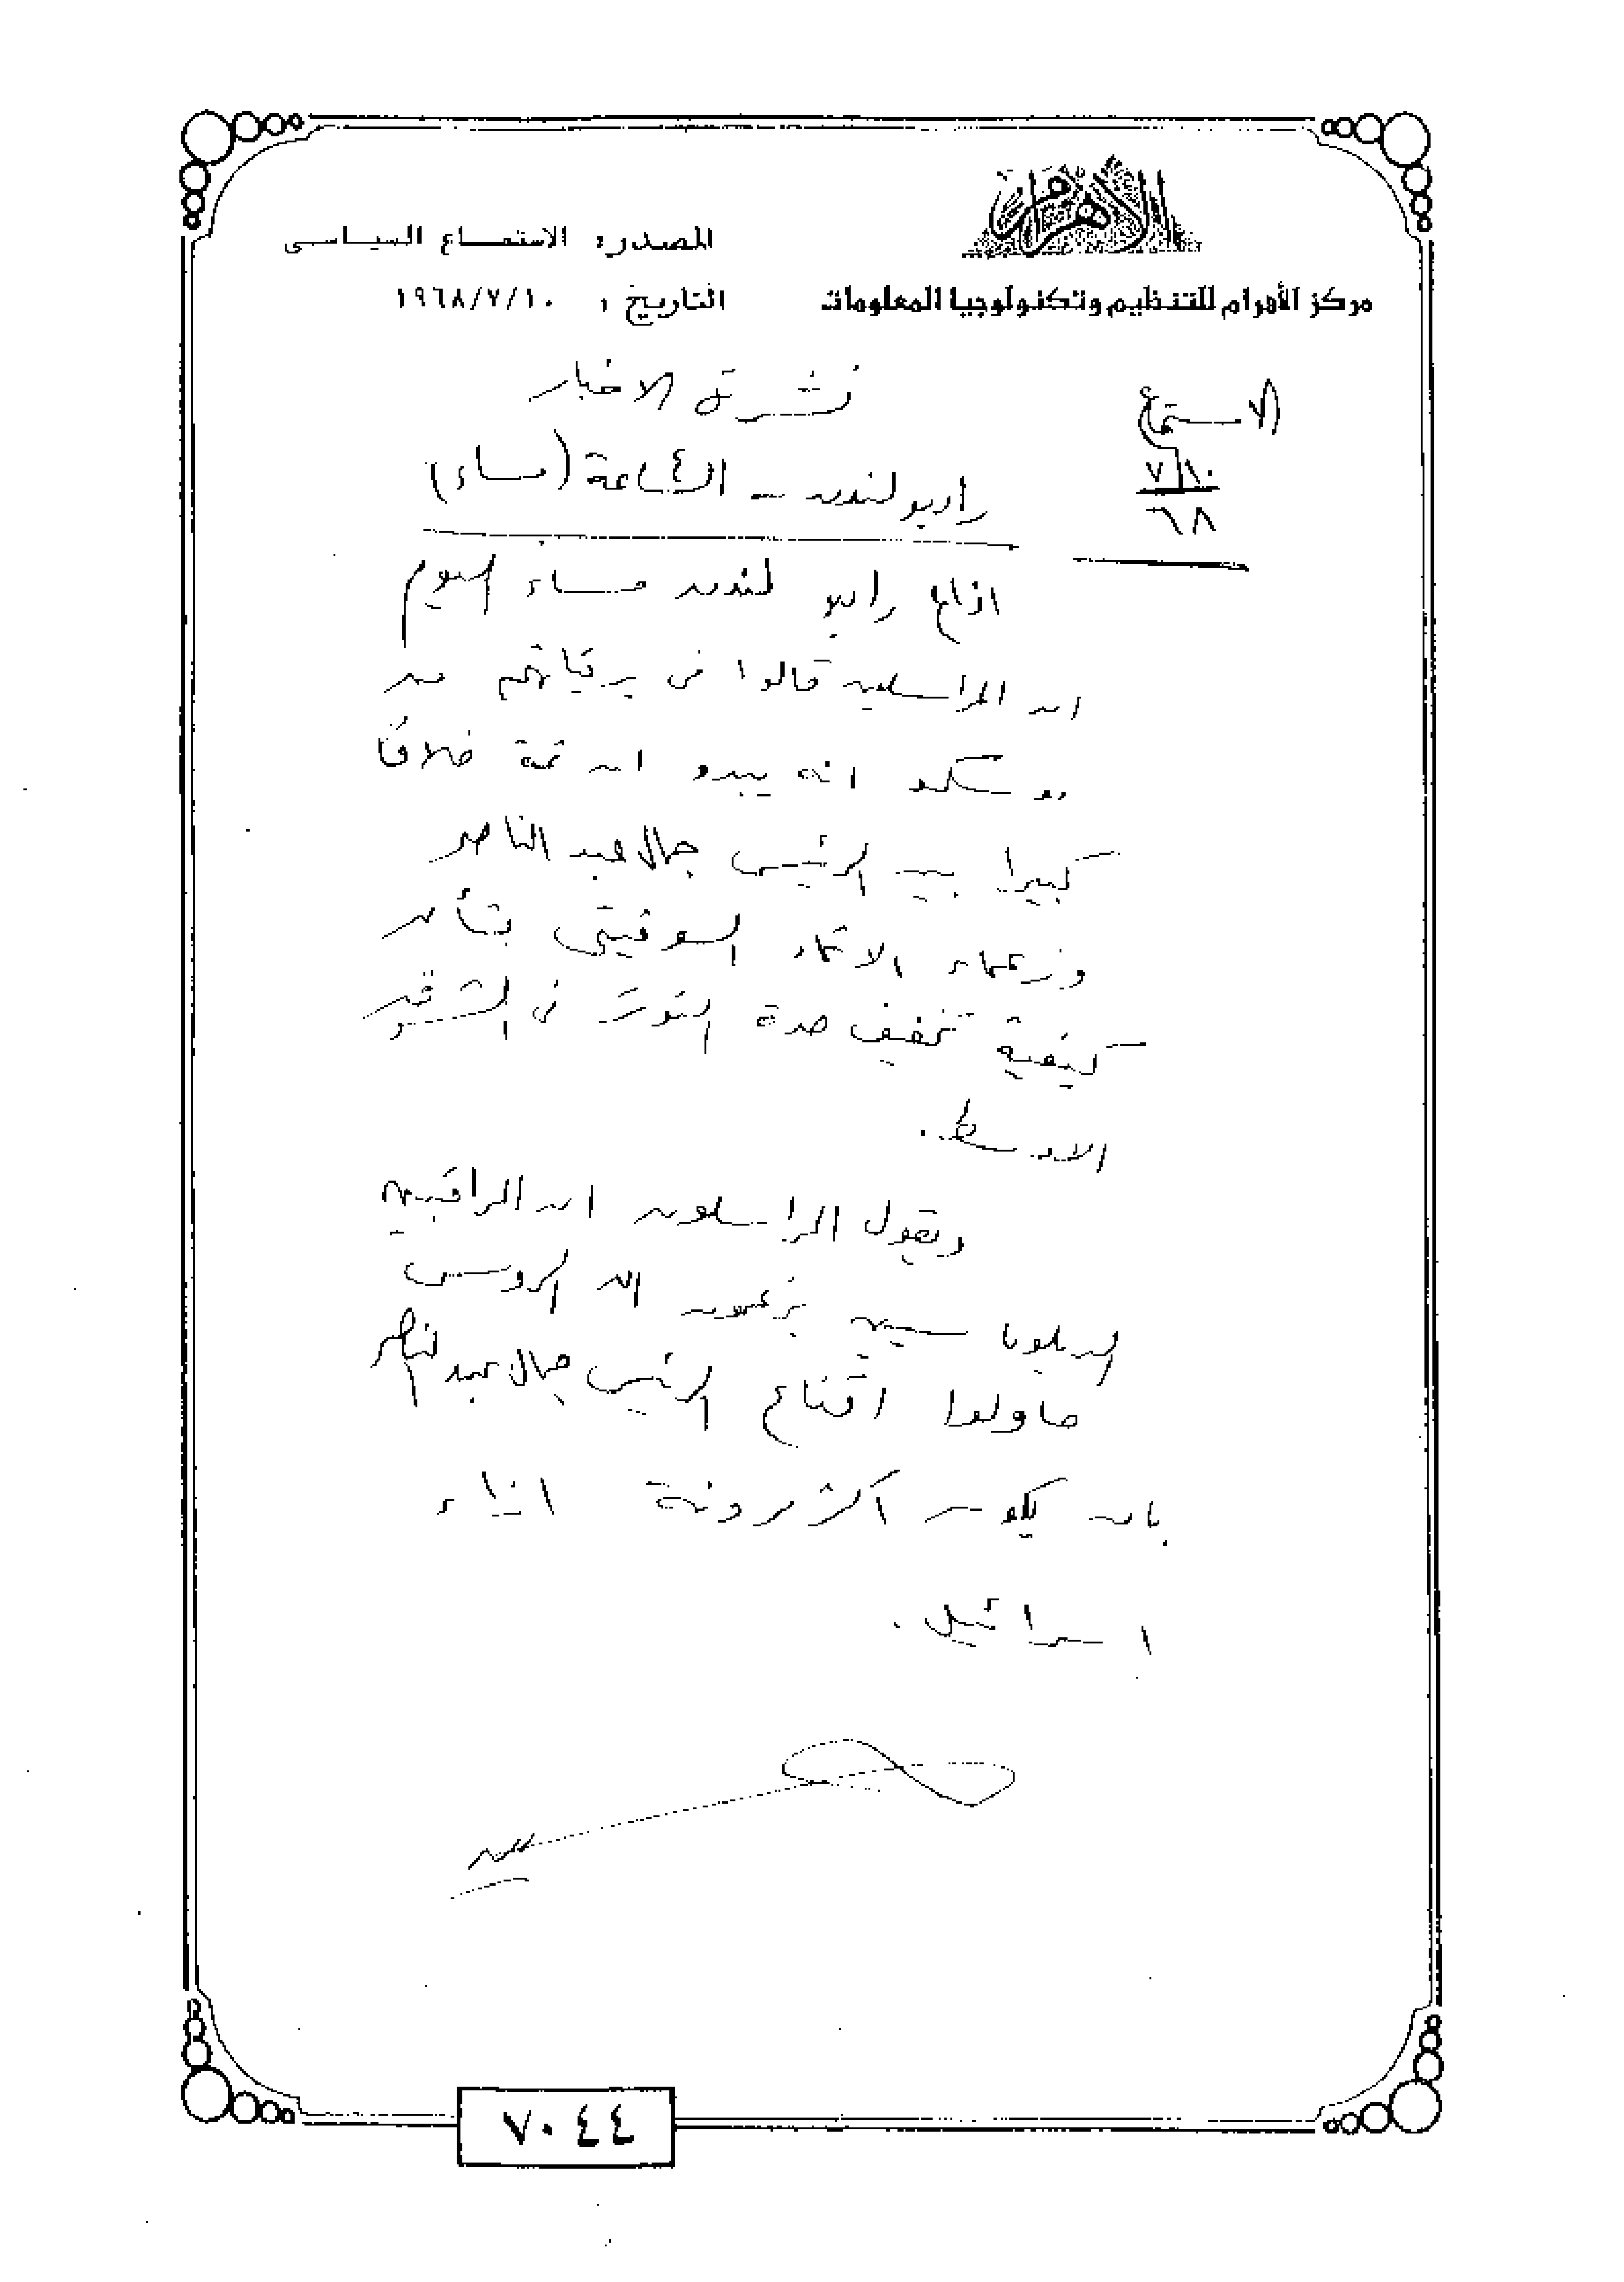 الأهرام
مركز الأهرام للتنظيم وتكنولوجيا المعلومات
المصدر: الاستماع السياسى
التاريخ: ١٩٦٨/٧/١٠
الاستماع
٧/١٠
٦٨
نشرة الاخبار
راديو لندن - الساعة ٤ (مساء)
اذاع راديو لندن مساء اليوم
ان المراسلين قالوا فى برقياتهم من
موسكو انه يبدو ان ثمة خلافا
كبيرا بين الرئيس جمال عبد الناصر
وزعماء الاتحاد السوفيتى بشأن
كيفية تخفيف حدة التوتر فى الشرق
الاوسط.
ويقول المراسلون ان المراقبين
الدبلوماسيين يزعمون ان الروس
حاولوا اقناع الرئيس جمال عبد الناصر
بان يكون اكثر مرونة ازاء
اسرائيل.
٧٠٤٤